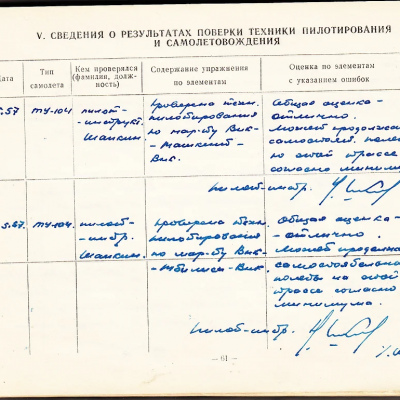 V. СВЕДЕНИЯ О РЕЗУЛЬТАТАХ ПОВЕРКИ ТЕХНИКИ ПИЛОТИРОВАНИЯ
И САМОЛЕТОВОЖДЕНИЯ
Дата
Тип самолета
Кем проверялся (фамилия, должность)
Содержание упражнения по элементам
Оценка по элементам с указанием ошибок
5.57
ТУ-104
пилот-
-инструкт.
Шапкин.
Проверена техн.
пилотирования
по мар-ту Внк-
- Ташкент-
Внк.
Общая оценка-
отлично.
Может продолжа
самостоят. поле
по этой трассе
согласно миниму
пилот-инстр.
5.57.
ТУ-104.
пилот-
-инстр.
Шапкин.
Проверена техн.
пилотирования
по мар-ту Внк-
- Тбилиси-Внк.
Общая оценка-
-отлично.
Может продолжа
самостоятельно
полеты на этой
трассе согласно
минимума.
пилот-инстр.
— 61 —